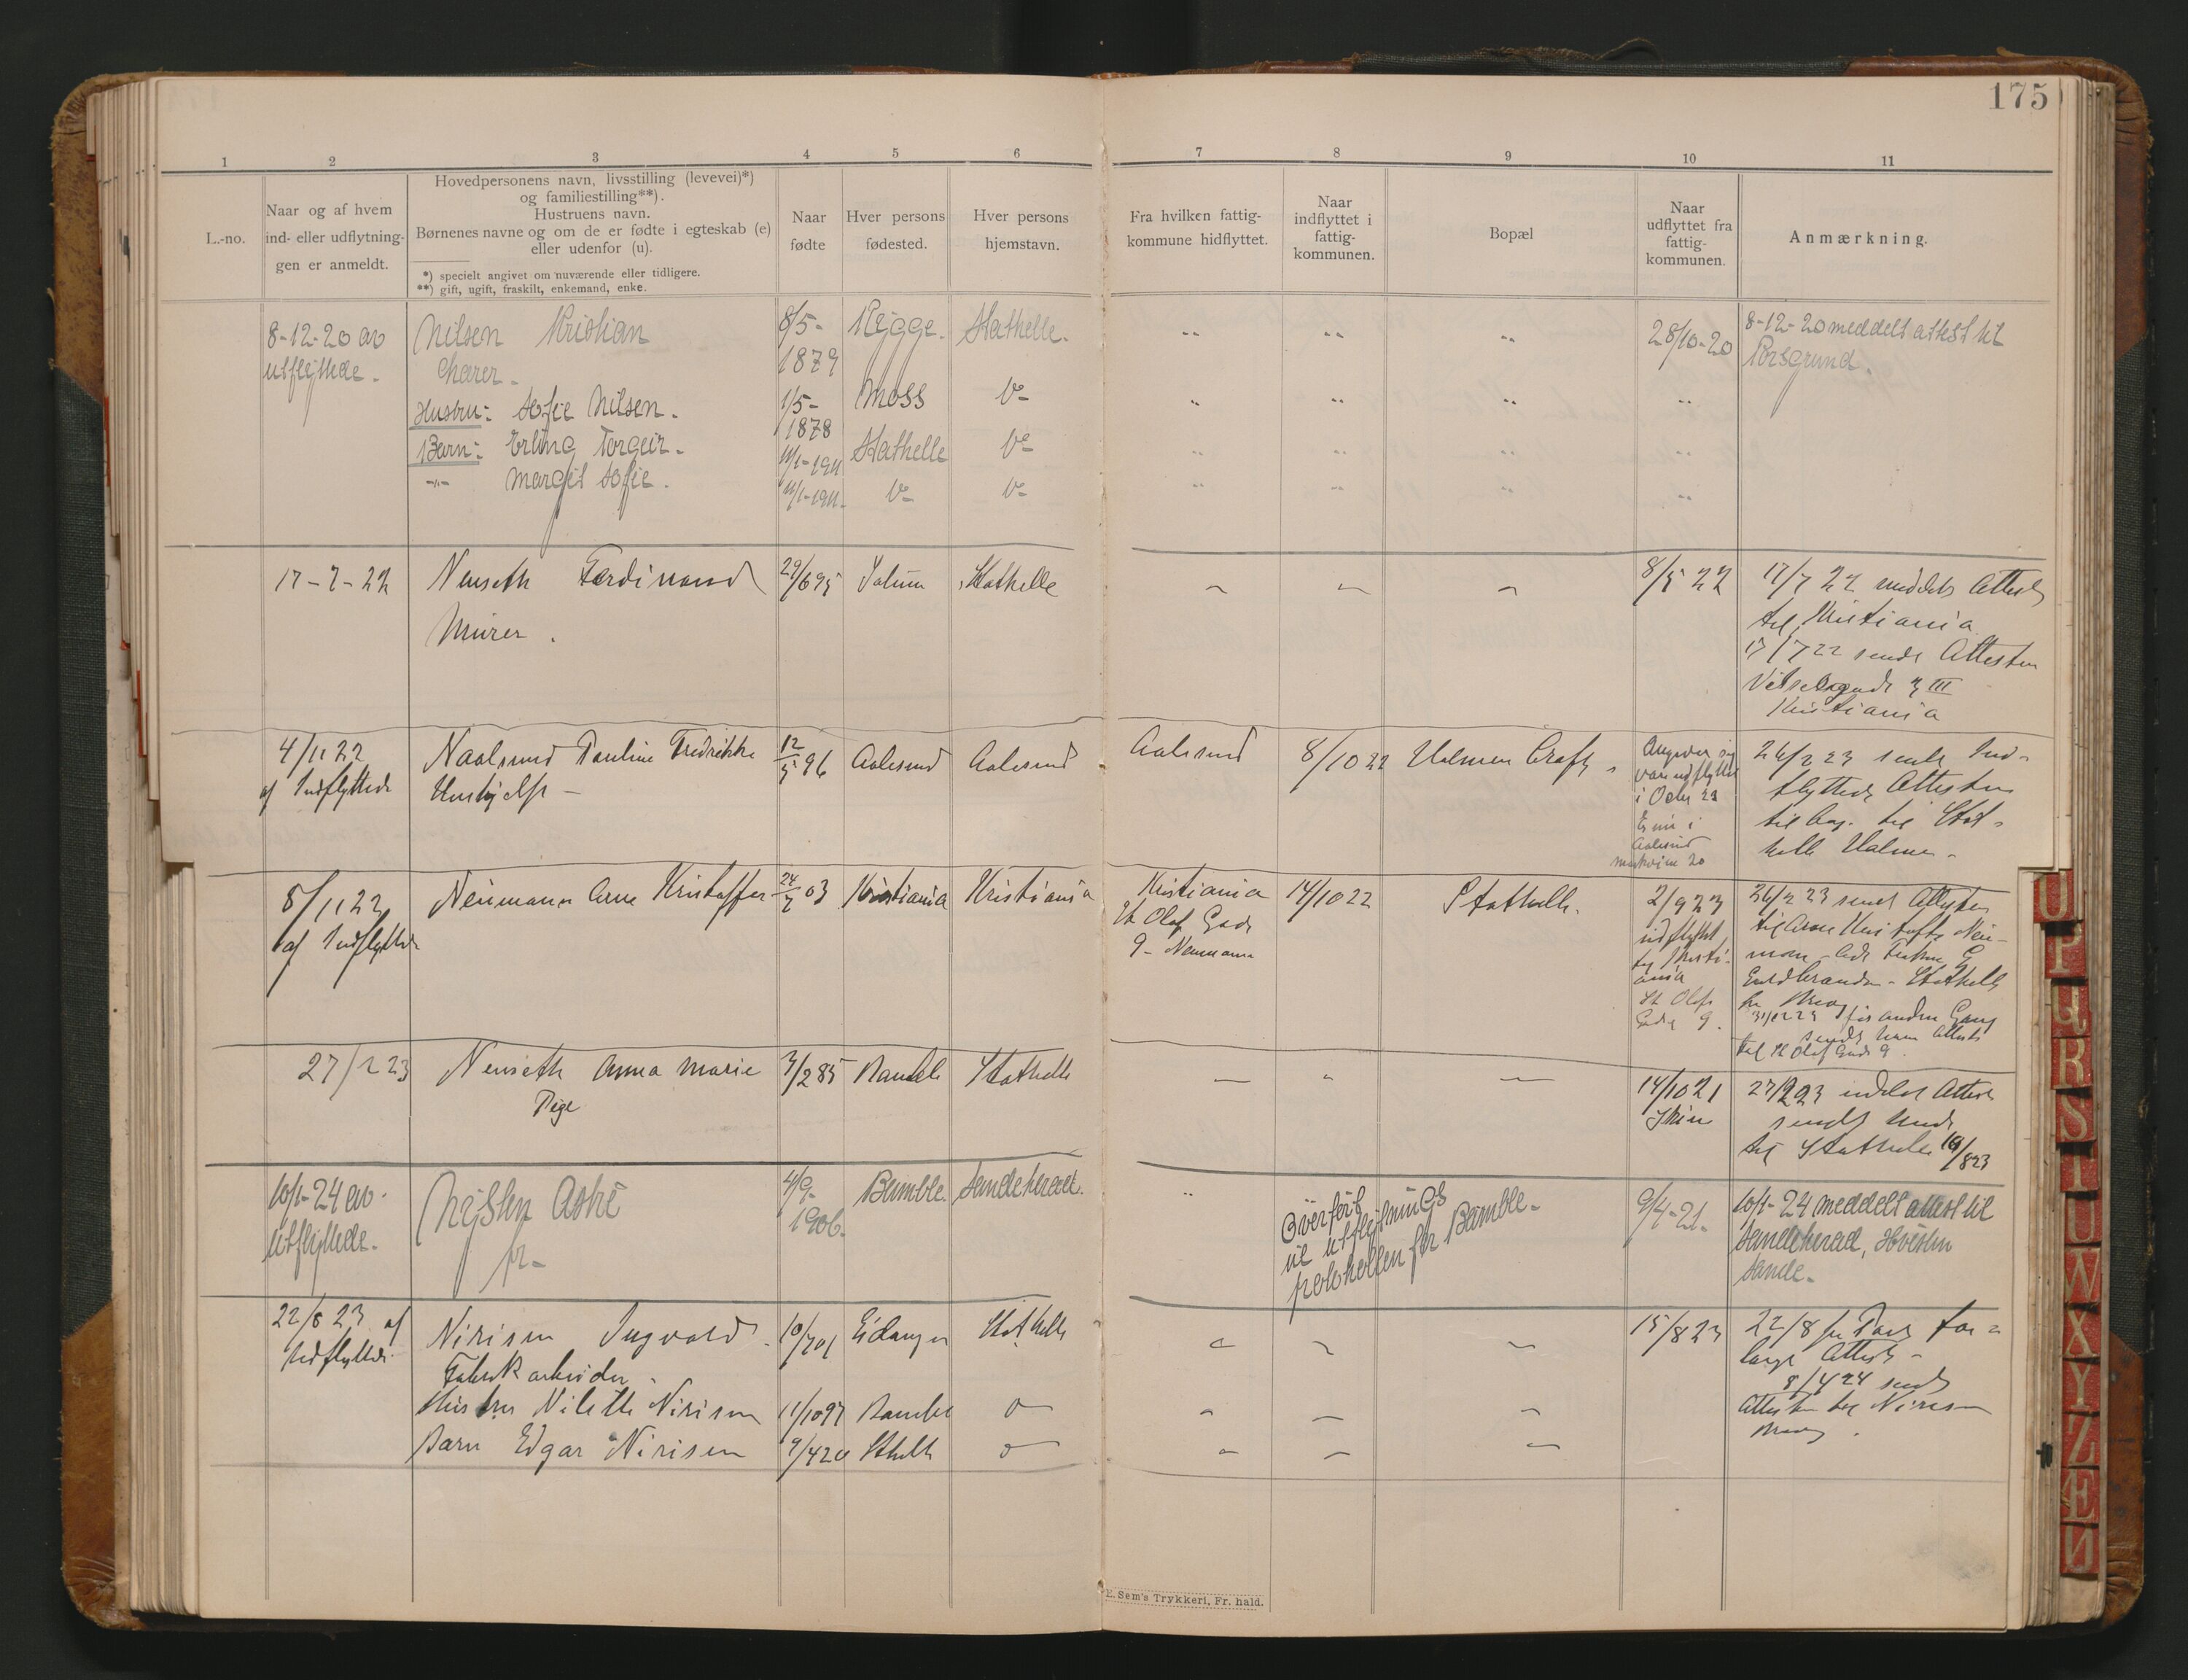 175
1 2 3 4 5 6 7 8 9 10 11
L.-no.
Naar og af hvem
ind- eller udflytning-
gen er anmeldt.
Hovedpersonens navn, livsstilling (levevei)*)
og familiestilling**).
Hustruens navn.
Børnenes navne og om de er fødte i egteskab (e)
eller udenfor (u).
*) specielt angivet om nuværende eller tidligere.
**) gift, ugift, fraskilt, enkemand, enke.
Naar
fødte
Hver persons
fødested.
Hver persons
hjemstavn.
Fra hvilken fattig-
kommune hidflyttet.
Naar
indflyttet i
fattig-
kommunen.
Bopæl
Naar
udflyttet fra
fattig-
kommunen.
Anmærkning.
8-12-20 av
utflyttede.
Nilsen Kristian
8/5-
1879
Rygge.
Stathelle.
28/10-20
8-12-20 meddelt attest til
Porsgrund.
Hustru: Sofie Nilsen.
1/5-
1878
Moss
Barn: Erling Torgeir.
11/1-1911
Stathelle
-"- Margit Sofie.
11/1-1911.
17-7-22
Nenseth Ferdinand
Murer.
29/6 95
Solum
Stathelle
8/5 22
17/7 22 meddelt Attest
til Kristiania
17/7 22 sendt Attesten
III
Kristiania
4/11 22
af Indflyttede
Naalsund Pauline Fredrikke
Hushjelp -
12/5 96
Aalesund
Aalesund
Aalesund
8/10 22
var udflyttet
i Octr 23
Er nu i
Aalesund
26/2 23 sendt Ind-
flyttede Attesten
til Stat-
helle
8/11 22
af Indflyttede
Neumann Arne Kristoffer
24/7 03
Kristiania
Kristiania
Kristiania
St Olaf Gade
9 - Neumann
14/10 22
Stathelle.
2/9 23
udflyttet
til Kristi-
ania
St Olafs
Gade 9.
26/2 23 sendt Attesten
til Arne Kristoffer Neu-
mann
Stathelle
for anden Gang
sendt ham Attest
til St Olaf Gade 9.
27/2 23
Nenseth Anna Marie
Pige
3/2 85
Bamble
Stathelle
14/10 21
Skien
27/2 23 utdelt Attest
sendt
til Stathelle 10/8 23
10/1-24 av
utflyttede.
Nysten Aste
fr-
4/9-
1906.
Bamble.
Sandeherad.
Överfört
til utflytnings
protokollen for Bamble.
9/4-21.
10/1-24 meddelt attest til
Sandeherad,
Sande.
22/8 23 af
Udflyttede
Nirisen Ingvald
Fabrikarbeider.
10/7 01
Eidanger
Stathelle
15/8 23
22/8 pr Post for-
langt Attest -
8/4 24 sendt
Attesten til Nirisen
Hustru Nilette Nirisen
11/10 97
Bamble
Barn Edgar Nirisen
9/4 20
Sthelle
E. Sem's Trykkeri, Fr. hald.
U
P
R
S
T
U
W
X
Y
Z
Æ